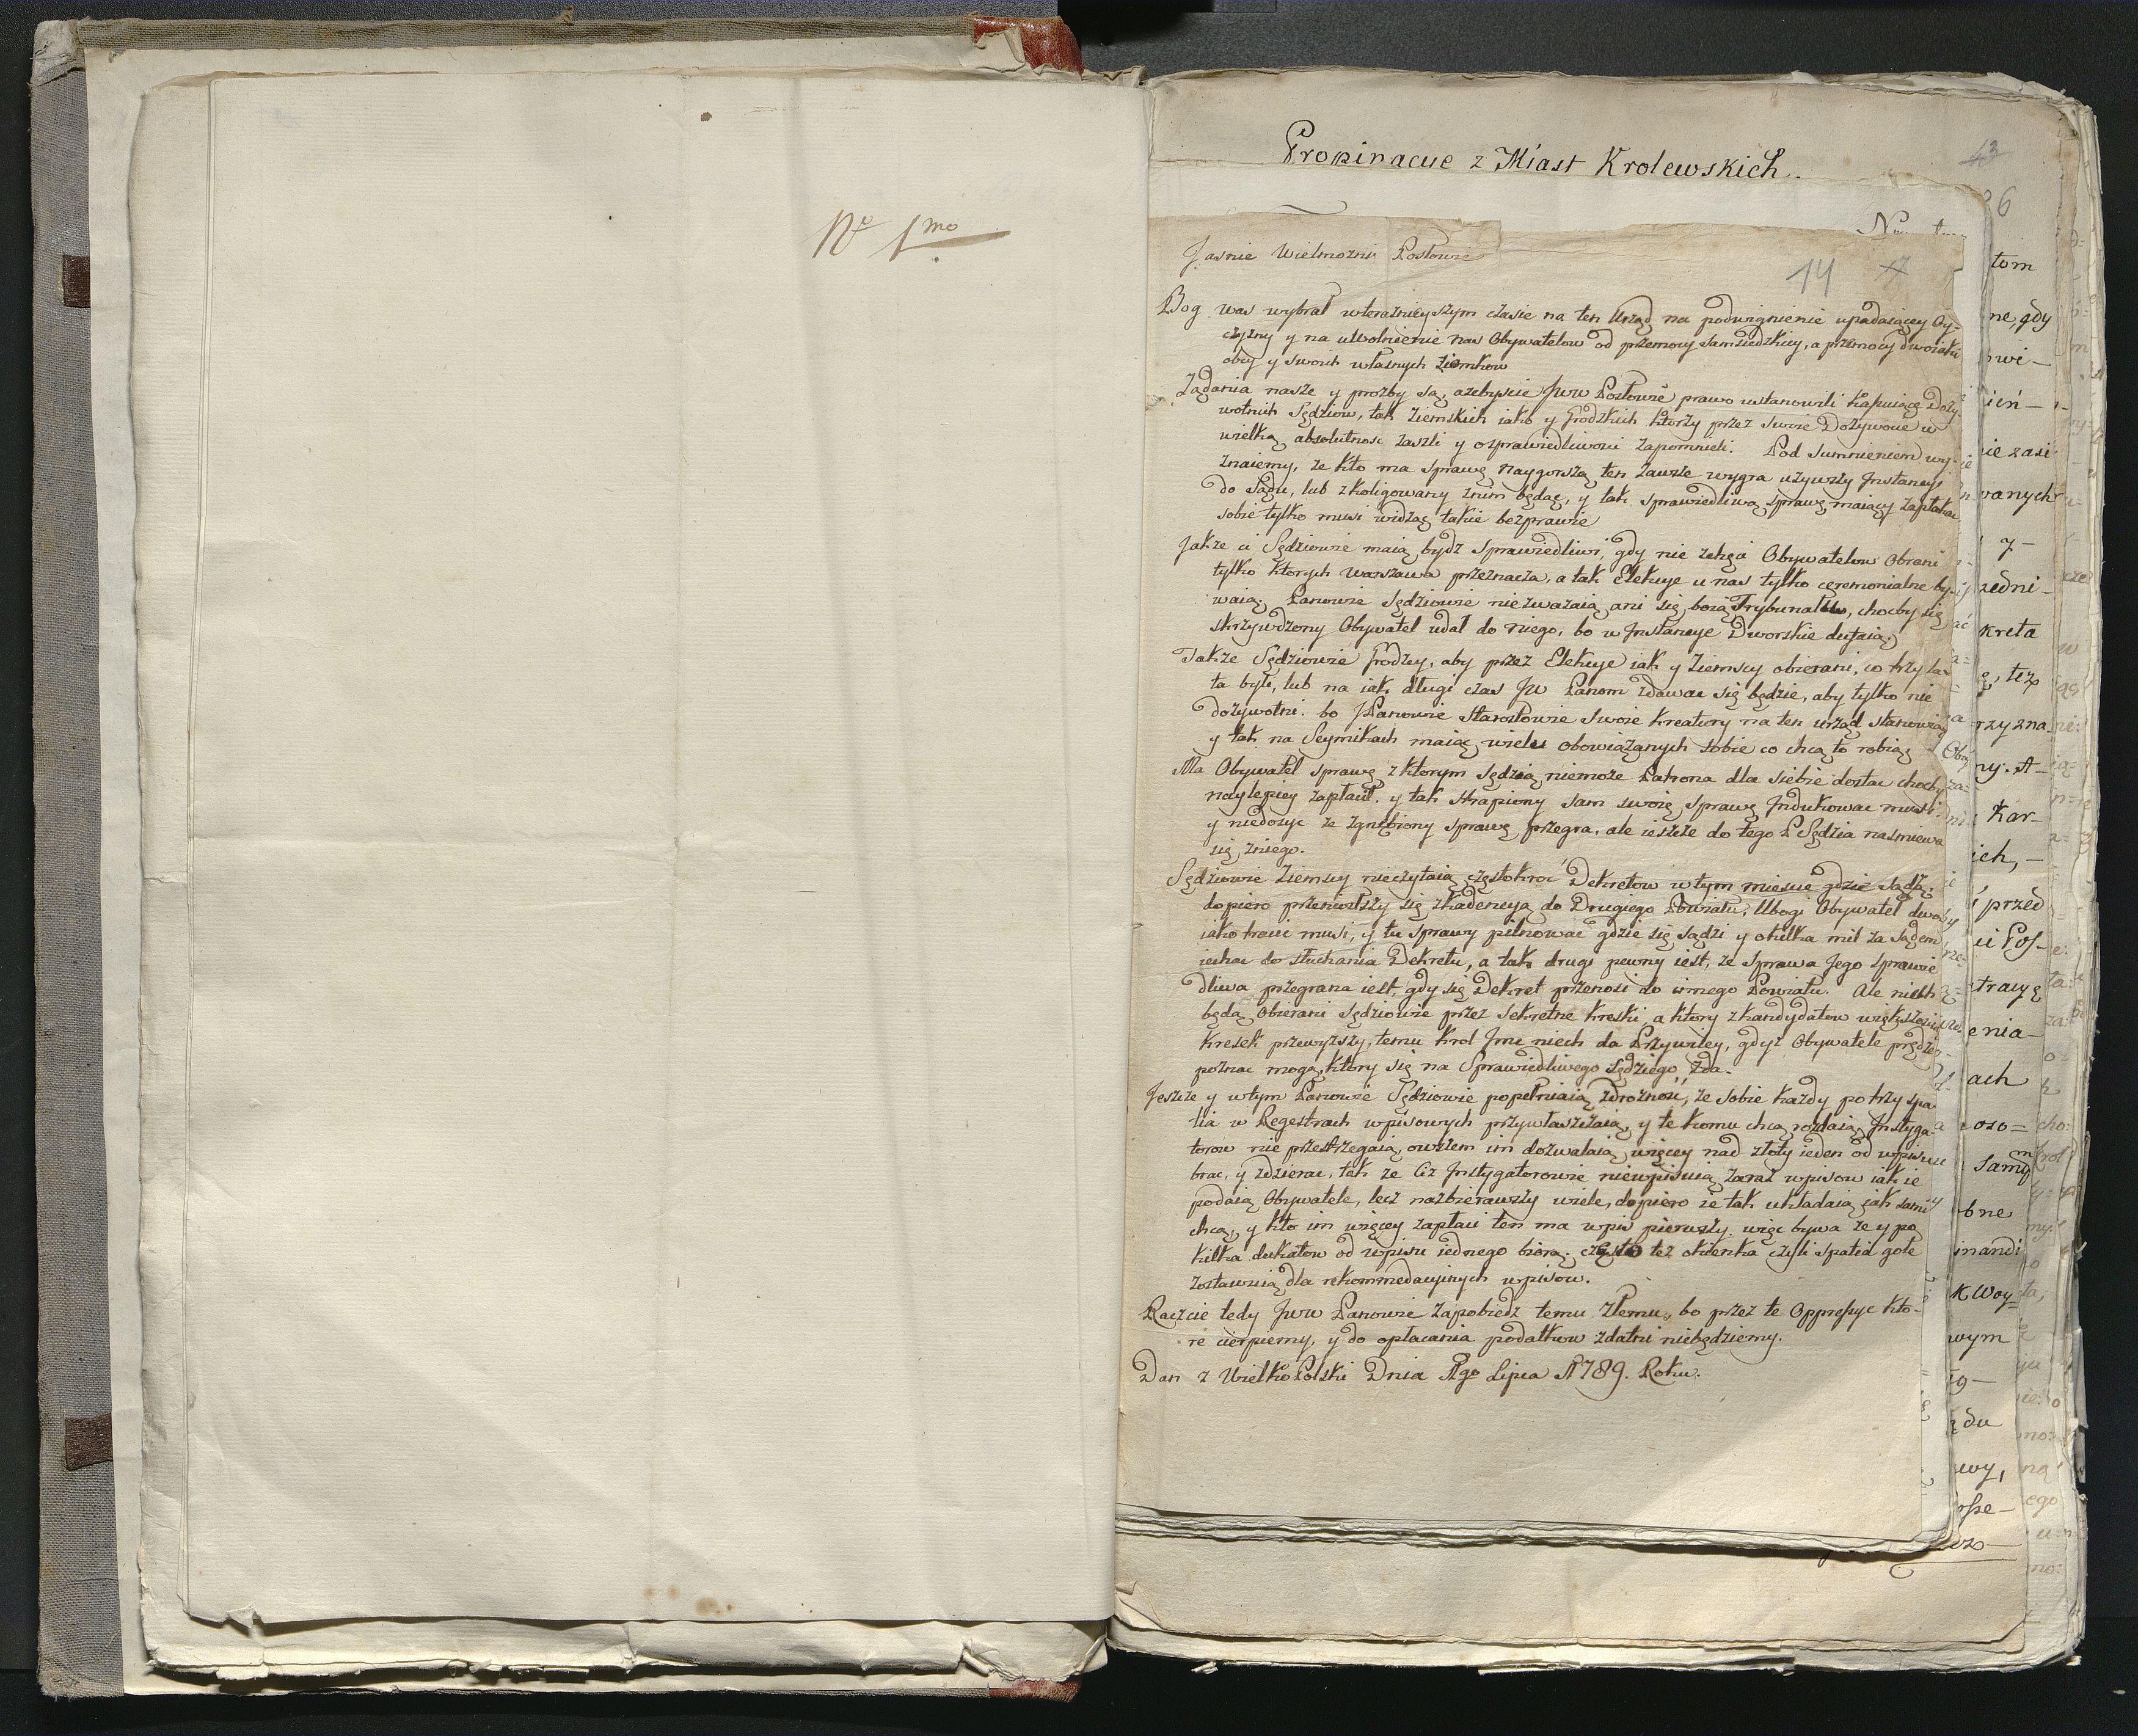 Nº 1mo
Propinacye z Miast Krolewskich.
43
14
Jasnie Wielmożni Posłowie
Bog was wybrał wteraznieyszym czasie na ten Urząd na podwignienie upadaiącey Oy-
czyzny y na uwolnienie nas Obywatelow od przemocy Samsiedzkiey, a przemocy dwoiakiey
obcy y swoich własnych Ziomkow
Żądania nasze y prozby są, azebyscie JWW Posłowie prawo ustanowili kasuiące Doży
wotnich Sędziow, tak Ziemskich iako y Grodzkich ktorzy przez swoie Dożywocie w
wielką absolutnosc zaszli y osprawiedliwosci zapomnieli. Pod Sumnieniem wy-
znaiemy, ze kto ma sprawę naygorszą ten zawsze wygra używszy Jnstancyi
do Sądu, lub zkoligowany znim będąc, y tak sprawiedliwą sprawę maiący zapłakac
sobie tylko musi widząc takie bezprawie
Jakze ci Sędziowie maią bydz sprawiedliwi, gdy nie zchęci Obywatelow Obrani
tylko ktorych Warszawa przeznacza, a tak Elekcye u nas tylko ceremonialne by-
waią. Panowie Sędziowie niezważaią ani się boią Trybunału, chocby się
skrzywdzony Obywatel udał do niego, bo w Jnstancye Dworskie dufaią.
Takze Sędziowie Grodzcy, aby przez Elekcye iak y Ziemscy obierani, co trzy la-
ta byli, lub na iak długi czas JW Panom zdawac się będzie, aby tylko nie
dożywotni. bo JPanowie Starostowie swoie kreatury na ten urząd stanowią
y tak na Seymikach maiąc wielu obowiązanych sobie co chcą to robią
Ma Obywatel sprawę z ktorym Sędzią niemoże Patrona dla siebie dostac chocby
naylepiey zapłacił. y tak strapiony sam swoię sprawę Jndukowac musi.
y niedosyc ze zgnębiony sprawę przegra, ale ieszcze do tego P Sędzia nasmiewa
się zniego.
Sędziowie Ziemscy nieczytaią częstokroć Dekretow wtym miescie gdzie sądzą;
dopiero przeniosłszy się zkadencyą do Drugiego Powiatu, Ubogi Obywatel dwo
iako tracic musi, y tu sprawy pilnowac gdzie się sądzi y okilka mil za sądem
iechac do słuchania Dekretu, a tak drugi pewny iest, ze sprawa Jego sprawie
dliwa przegrana iest, gdy się Dekret przenosi do innego Powiatu. Ale niech
będą Obierani Sędziowie przez sekretne kreski, a ktory zkandydatow większością
Kresek przewyższy, temu Krol Jmc niech da Przywiley, gdyż Obywatele prędzey
poznac mogą, ktory się na Sprawiedliwego Sędziego zda.
Jeszcze y wtym Panowie Sędziowie popełniaią zdrożnosć, ze sobie każdy po trzy spa-
tia w Regestrach wpisowych przywłaszczaią, y te komu chcą rozdaią, Jnstyga-
torow nie przestrzegaią, owszem im dozwalaią więcey nad złoty ieden od wpisu
brac, y zdzierac, tak ze Ciz Jnstygatorowie niewpisuią zaraz wpisow iak ie
podaią Obywatele, lecz nazbierawszy wiele, dopiero ie tak układaią iak sami
chcą, y kto im więcey zapłaci ten ma wpis pierwszy, więc bywa ze y po
kilka dukatow od wpisu iednego biorą, często tez okienka czyli spatia gołe
zostawuią dla rekommedacyinych wpisow.
Raczcie tedy JWW Panowie zapobiedz temu złemu, bo przez te Oppressye kto-
re cierpiemy, y do opłacania podatkow zdatni niebędziemy.
Dan z Wielko Polski Dnia 1go Lipca 1789. Roku.